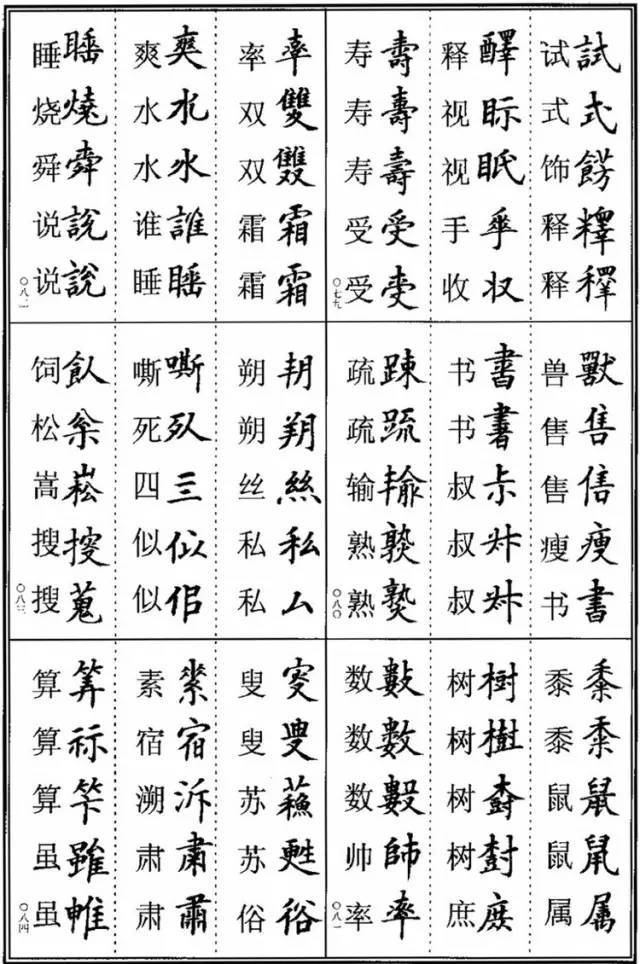 试試
式式
饰餝
释釋
释釋
释醳
视眎
视眂
手𠂿
收収
寿壽
寿壽
寿壽
受受
受
〇七九
兽獸
售售
售
瘦瘦
书書
书書
书
叔尗
叔
叔
疏踈
疏䟽
输
熟
熟
〇八〇
黍黍
黍
鼠鼠
鼠鼡
属属
树樹
树樹
树
树尌
庶庶
数數
数數
数數
帅帥
率率
〇八一
率率
双雙
双雙
霜霜
霜霜
爽爽
水水
水水
谁誰
睡睡
睡睡
烧燒
舜舜
说說
说說
〇八二
朔朔
朔朔
丝絲
私私
私厶
嘶嘶
死
四亖
似似
似佀
饲飤
松枀
嵩崧
搜搜
搜蒐
〇八三
叟叜
叟叟
苏蘓
苏甦
俗俗
素素
宿宿
溯泝
肃肅
肃肅
算筭
算祘
算
虽雖
虽
〇八四